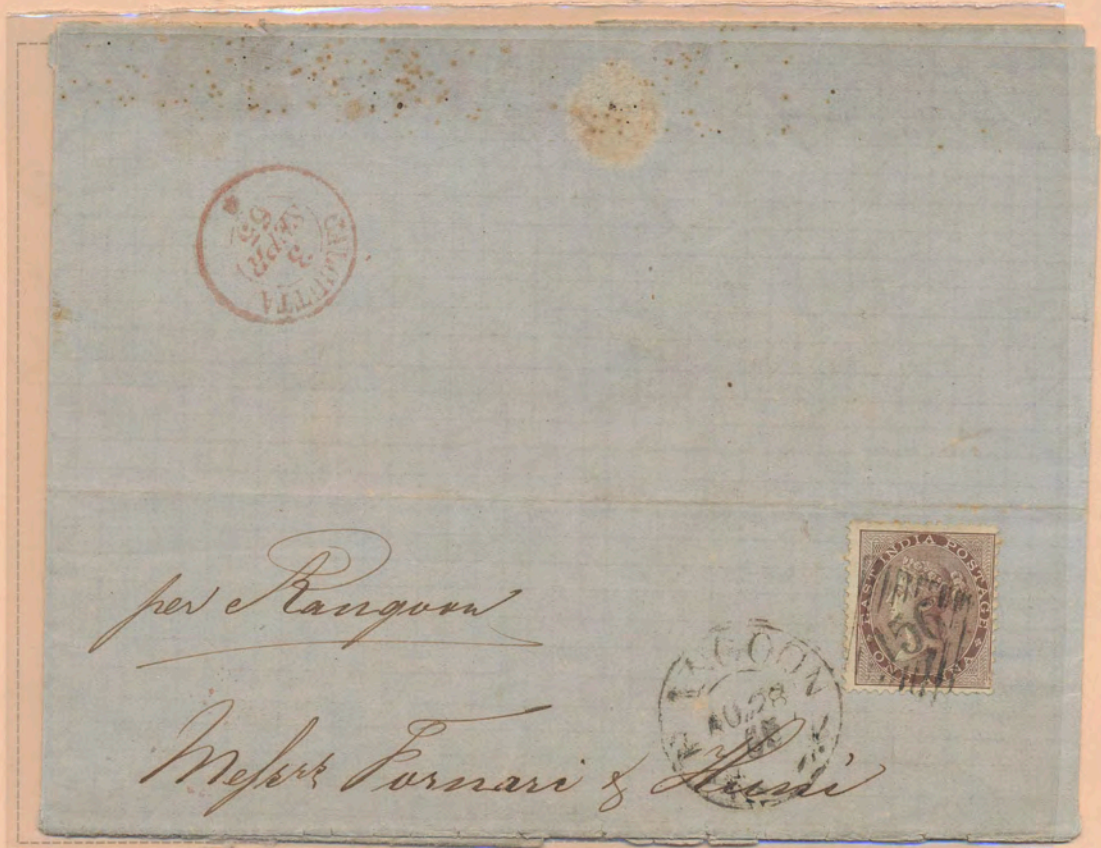 CALCUTTA
3
SEPR
65
per Rangoon
EAST INDIA POSTAGE
ONE ANNA
156
RANGOON
AU.28
65
Messrs Fornari & Huni